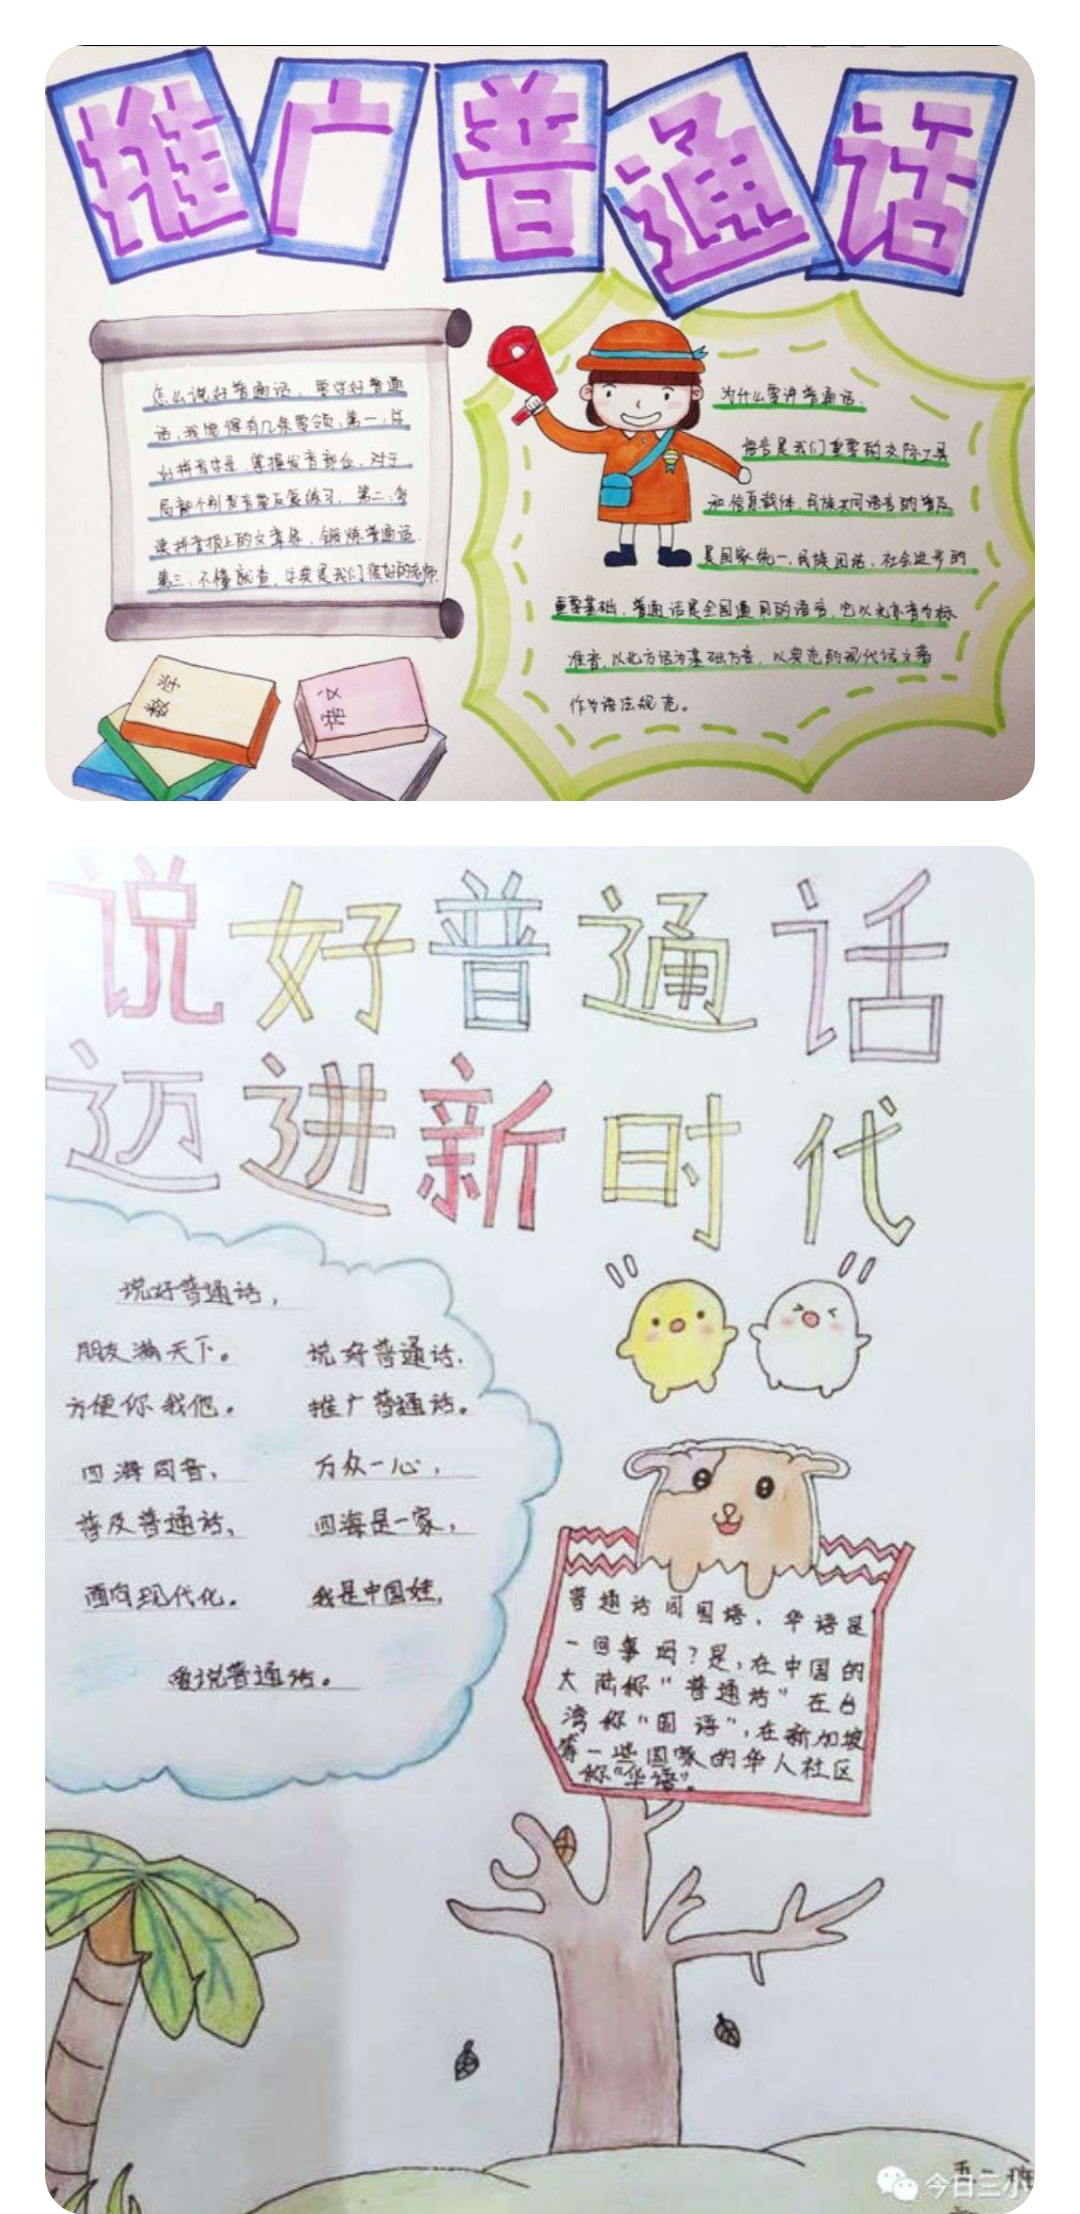 推广普通话
怎么说好普通话，要学好普通
话，我觉得有几条要领，第一：学
好拼音字母，掌握发音部位，对于
局部个别发音要反复练习，第二：多
读拼音报上的文章等，锻炼普通话，
第三：不懂就查，字典是我们很好的老师.
数学
语文
为什么要讲普通话，
语言是我们重要的交际工具
和信息载体，民族共同语言的普及
是国家统一，民族团结、社会进步的
重要基础，普通话是全国通用的语言，它以北京音为标
准音，以北方话为基础方言，以典范的现代话文著
作为语法规范。
说好普通话
迈进新时代
说好普通话，
朋友满天下。
方便你我他。
四海同音，
普及普通话，
面向现代化。
说好普通话，
推广普通话。
万众一心，
四海是一家，
我是中国娃，
爱说普通话。
普通话同国语，华语是
一回事吗？是，在中国的
大陆称“普通话”在台
湾称“国语”，在新加坡
等一些国家的华人社区
称“华语”。
五二班
今日三小